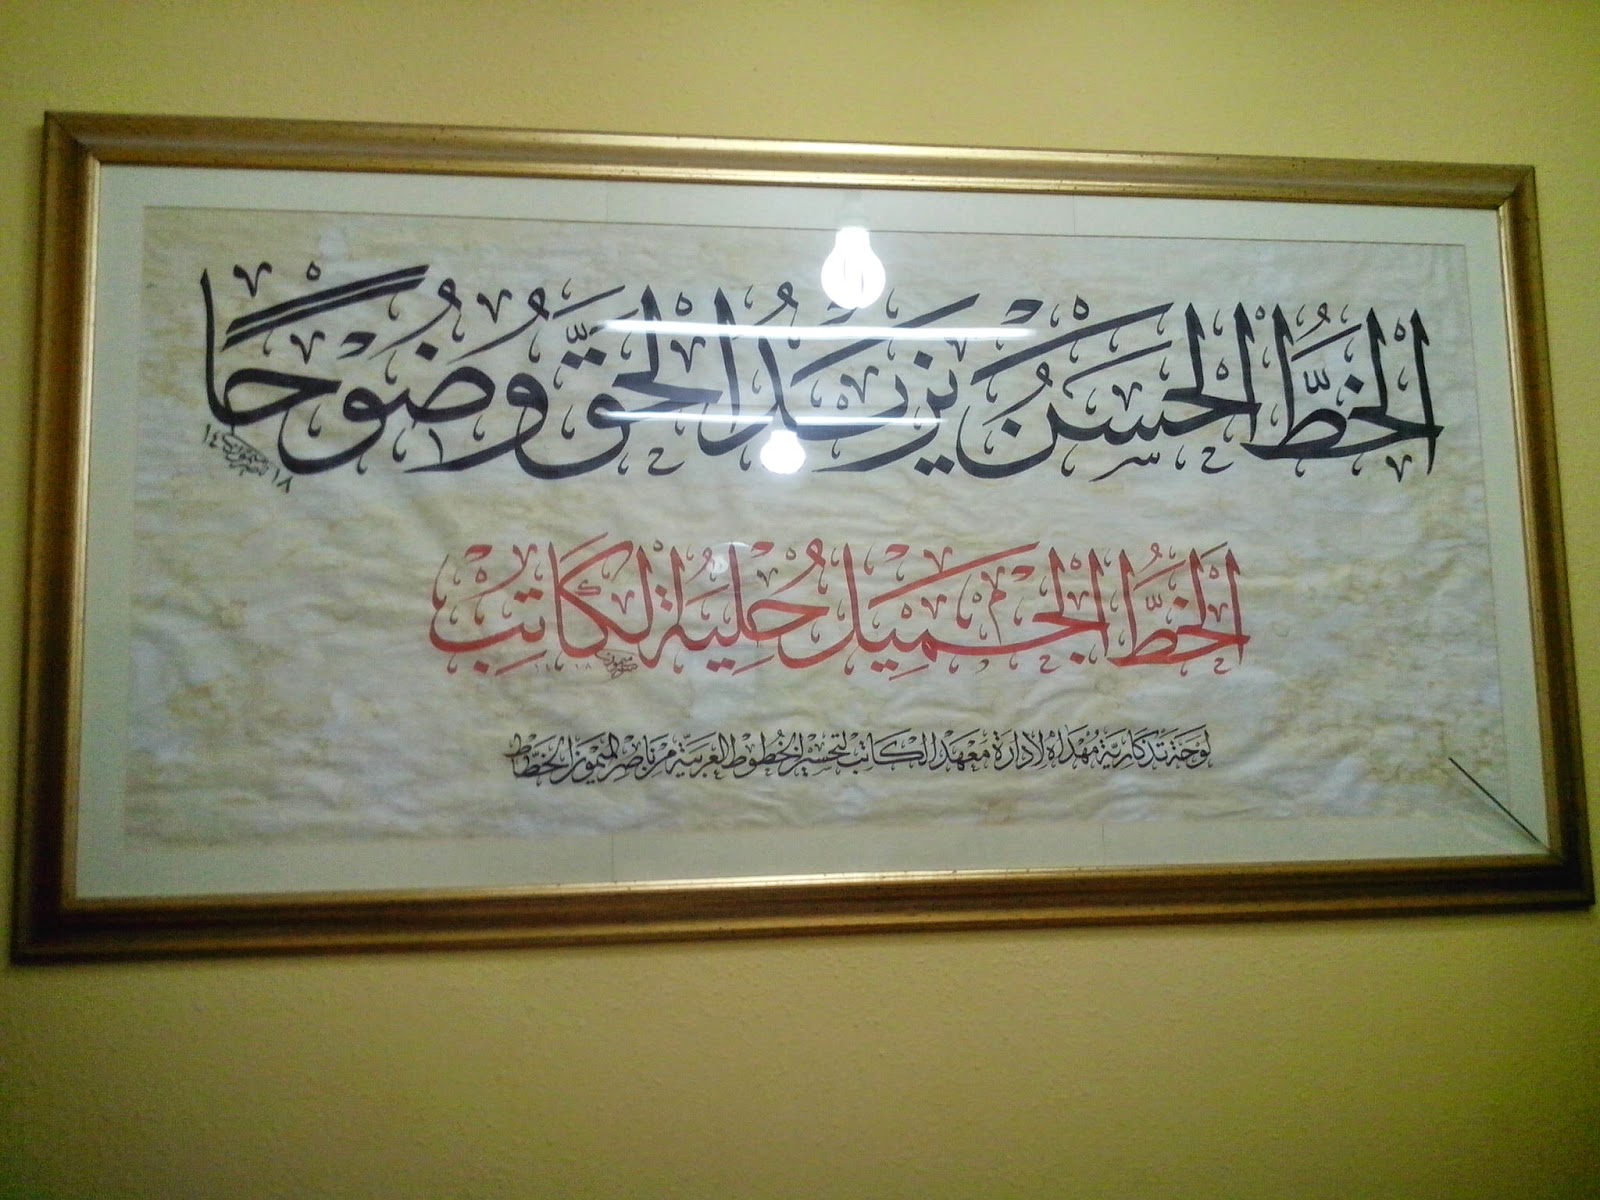 الخَطُّ الحَسَنُ يَزيدُ الحَقَّ وُضُوْحًا
١٤١٨
اَلخَطُّ الجَمِيلُ حُلِيَةُ الكَاتِبْ
١٤١٨
لوحة تذكارية مهداه لادارة معهد الكاتب لتحسين الخطوط العربية من ناصر الميمون الخطاط